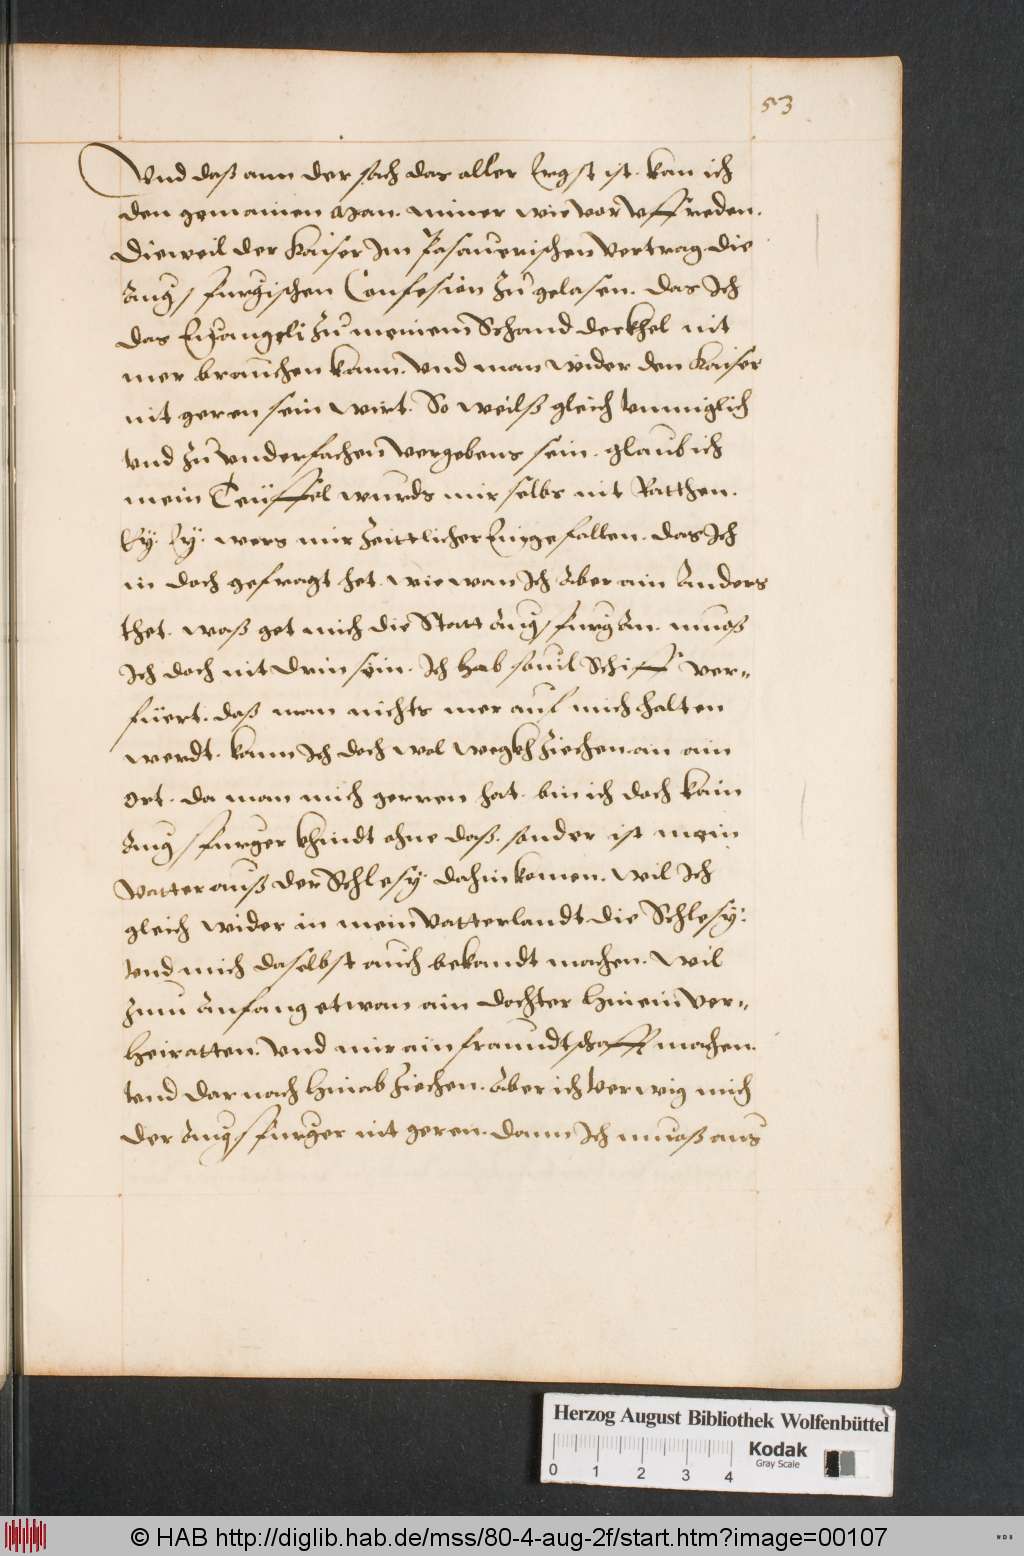 53
Und daß ann der sach das aller Ergst ist. kan ich
den gemainen man. nimer wie vor uffrieden.
Dieweil der Kaiser Im Pasauerischen Vertrag die
Augspurgischen Confesion Zu gelasen. das Ich
das Euangeli Zu meinem Schand deckhel nit
mer brauchen kann. Und man wider den Kaiser
nit geren sein wirt. So weils gleich unmiglich
und Zu underfachen vergebens sein. glaub ich
mein Teuffel wurds mir selbs nit Ratthen.
Ey. Ey. wers mir Zeittlicher Eingefallen. das Ich
in doch gefragt het. wie wan Ich Aber ain Anders
thet. waß get mich die Statt Augspurg An. muoß
Ich doch nit drin sein. Ich hab souil Schiff ver-
füert. daß man nichts mer auf mich halten
werdt. kann Ich doch wol wegkh Ziechen an ain
Ort. da man mich gerren hat. bin ich doch kain
Augspurger khindt ohne daß. sonder ist mein
Vatter auß der Schlesy. dahin komen. wil Ich
gleich wider in mein Vatterlandt die Schlesy.
und mich daselbst auch bekandt machen. wil
Zum Anfang etwan ain dochter hinein ver-
heiratten. Und mir ain fraundtschafft machen.
und darnach hinab Ziechen. Aber ich verwig mich
der Augspurger nit geren. dann Ich muoß aus
Herzog August Bibliothek Wolfenbüttel
0 1 2 3 4
Kodak
Gray Scale
© HAB http://diglib.hab.de/mss/80-4-aug-2f/start.htm?image=00107